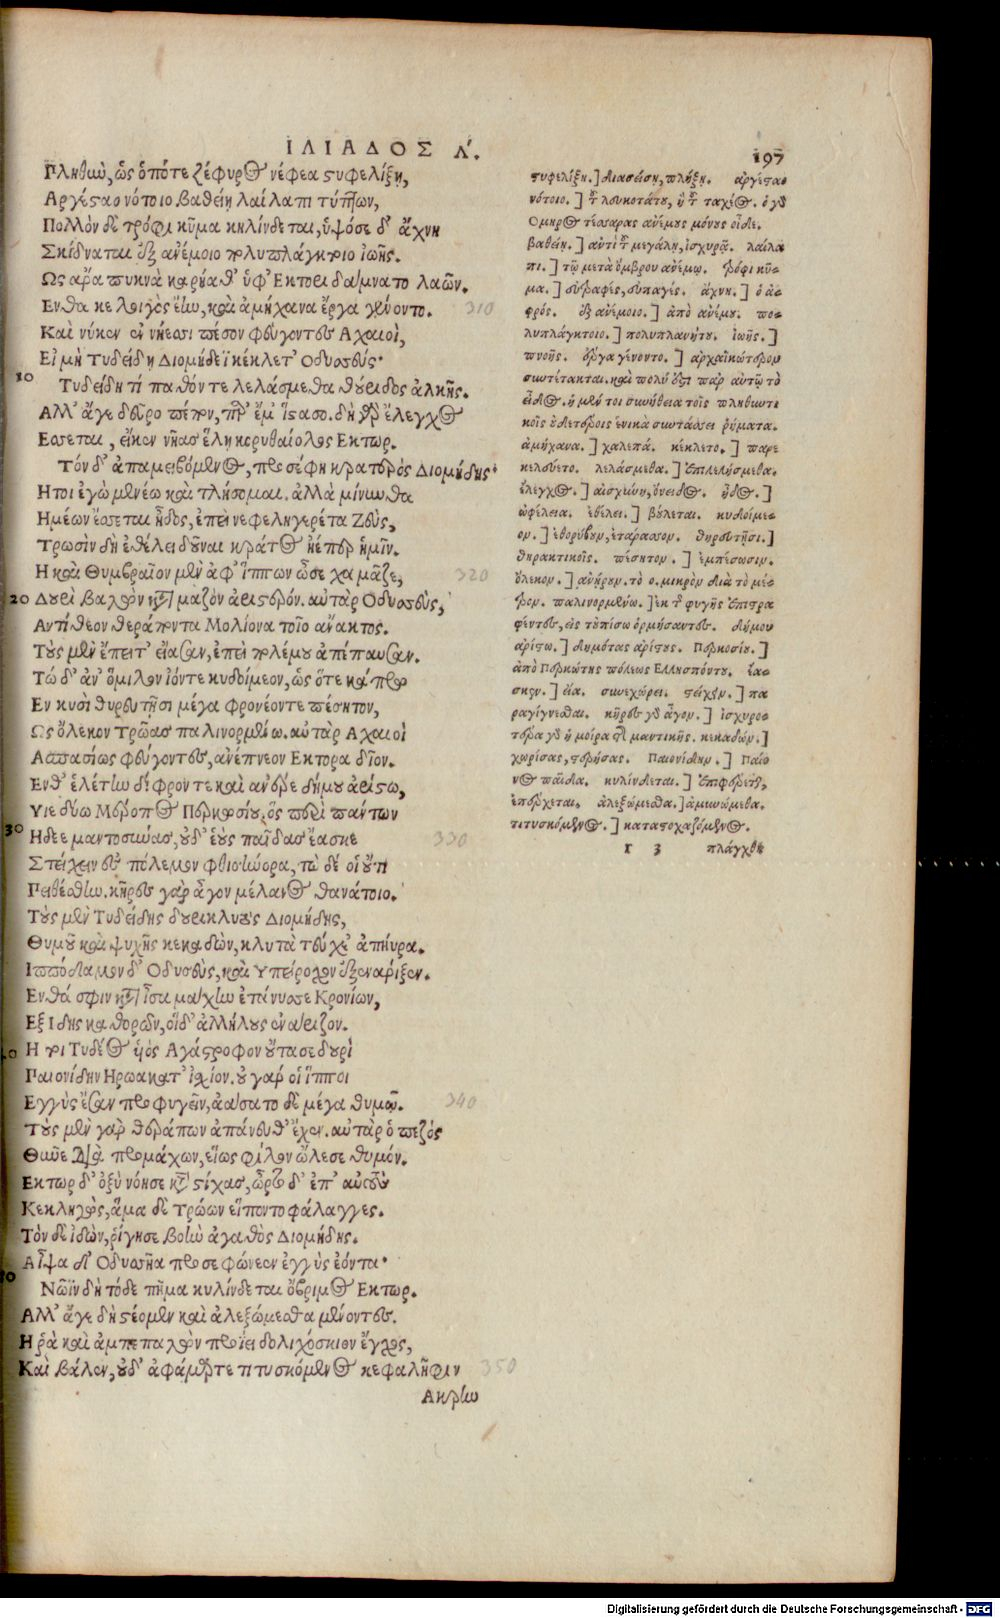 ΙΛΙΑΔΟΣ Λ. 197
Πληθιὺ, ὡς ὁπότε ζέφυρος νέφεα στυφελίξῃ,
Αργέσταο νότοιο βαθείῃ λαίλαπι τύπτων,
Πολλὸν δὲ τρόφι κῦμα κηλίνδεται, ὑψόσε δ' ἄχνη
Σκίδναται ἐξ ἀνέμοιο πολυπλάγκτοιο ἰωῆς.
Ως ἄρα πυκνὰ καρήαθ' ὑφ' Εκτορι δάμνατο λαῶν.
Ενθα κε λοιγὸς ἔην, καὶ ἀμήχανα ἔργα γένοντο. 310
Καὶ νύκεν ἐν νήεσσι πέσον φεύγοντες Αχαιοὶ,
Εἰ μὴ Τυδείδῃ Διομήδεϊ κέκλετ' Οδυσσεύς·
10
Τυδείδη τί παθόντε λελάσμεθα θούριδος ἀλκῆς.
Αλλ' ἄγε δεῦρο πέπον, παρ' ἔμ' ἵστασο. δὴ γὰρ ἔλεγχος
Εσσεται, εἴκεν νῆας ἕλῃ κορυθαίολος Εκτωρ.
Τὸν δ' ἀπαμειβόμενος, προσέφη κρατερὸς Διομήδης·
Ητοι ἐγὼ μενέω καὶ τλήσομαι. ἀλλὰ μίνυνθα
Ημέων ἔσσεται ἦδος, ἐπεὶ νεφεληγερέτα Ζεὺς,
Τρωσὶν δὴ ἐθέλει δοῦναι κράτος ἠέπερ ἡμῖν.
Η καὶ Θυμβραῖον μὲν ἀφ' ἵππων ὦσε χαμᾶζε, 320
20 Δουρὶ βαλὼν κατὰ μαζὸν ἀριστερόν. αὐτὰρ Οδυσσεὺς,
Αντίθεον θεράποντα Μολίονα τοῖο ἄνακτος.
Τοὺς μὲν ἔπειτ' εἴασαν, ἐπεὶ πολέμου ἀπέπαυσαν.
Τώ δ' ἀν' ὅμιλον ἰόντε κυδοίμεον, ὡς ὅτε κάπρω
Εν κυσὶ θηρευτῇσι μέγα φρονέοντε πέσητον,
Ως ὄλεκον Τρῶας παλινορμένω. αὐτὰρ Αχαιοὶ
Ασπασίως φεύγοντες, ἀνέπνεον Εκτορα δῖον.
Ενθ' ἑλέτην δίφρον τε καὶ ἀνέρε δήμου ἀρίστω,
Υιε δύω Μέροπος Περκωσίου, ὃς περὶ πάντων
30 Ηδεε μαντοσύνας, οὐδ' ἑοὺς παῖδας ἔασκε 330
Στείχειν ἐς πόλεμον φθισήνορα, τὼ δέ οἱ οὔτι
Πειθέσθην. κῆρες γὰρ ἄγον μέλανος θανάτοιο.
Τοὺς μὲν Τυδείδης δουρικλυτὸς Διομήδης,
Θυμοῦ καὶ ψυχῆς κεκαδὼν, κλυτὰ τεύχε' ἀπηύρα.
Ιππόδαμον δ' Οδυσεὺς, καὶ Υπείροχον ἐξενάριξεν.
Ενθά σφιν κατὰ ἶσα μάχην ἐτάνυσσε Κρονίων,
Εξ Ιδης καθορῶν, οἵδ' ἀλλήλους ἐνάριζον.
40 Η τοι Τυδέος υἱὸς Αγάστροφον οὔτασε δουρὶ
Παιονίδην Ηρωα κατ' ἰσχίον. οὐ γάρ οἱ ἵπποι
Εγγὺς ἔσαν προφυγεῖν, ἀάσατο δὲ μέγα θυμῷ. 340
Τοὺς μὲν γὰρ θεράπων ἀπάνευθ' ἔχεν. αὐτὰρ ὁ πεζὸς
Θῦνε διὰ προμάχων, εἵως φίλον ὤλεσε θυμόν.
Εκτωρ δ' ὀξὺ νόησε κατὰ στίχας, ὦρτο δ' ἐπ' αὐτοὺς
Κεκληγὼς, ἅμα δὲ Τρώων εἵποντο φάλαγγες.
Τὸν δὲ ἰδὼν, ῥίγησε βοὴν ἀγαθὸς Διομήδης.
Αἶψα δ' Οδυσσῆα προσεφώνεεν ἐγγὺς ἐόντα·
50
Νῶϊν δὴ τόδε πῆμα κυλίνδεται ὄβριμος Εκτωρ.
Αλλ' ἄγε δὴ στέομεν καὶ ἀλεξώμεσθα μένοντες.
Η ῥὰ καὶ ἀμπεπαλὼν προΐει δολιχόσκιον ἔγχος,
Καὶ βάλεν, οὐδ' ἀφάμαρτε τιτυσκόμενος κεφαλῆφιν 350
Ακρην
στυφελίξῃ.] διασείσῃ, πλήξῃ. ἀργέσταο
νότοιο.] τοῦ λευκοτάτου, ἢ τοῦ ταχέος. ὁ γὰρ
Ομηρος τέσσαρας ἀνέμους μόνους οἶδε.
βαθείῃ.] ἀντὶ τοῦ μεγάλῃ, ἰσχυρᾷ. λαίλα
πι.] τῷ μετὰ ὄμβρου ἀνέμῳ. τρόφι κῦ-
μα.] εὐτραφές, συπαγές. ἄχνη.] ὁ ἀ-
φρός. ἐξ ἀνέμοιο.] ἀπὸ ἀνέμου. πο-
λυπλάγκτοιο.] πολυπλανήτου. ἰωῆς.]
πνοῆς. ἔργα γένοντο.] ἀρχαϊκώτερον
συντέτακται. καὶ πολύ ἐστι παρ' αὐτῷ τὸ
εἶδος. ἡ μέντοι συνήθεια τοῖς πληθυντι
κοῖς οὐδετέροις ἑνικὰ συντάσσει ῥήματα.
ἀμήχανα.] χαλεπά. κέκλετο.] παρε
κελεύετο. λελάσμεθα.] ἐπιλελήσμεθα.
ἔλεγχος.] αἰσχύνη, ὄνειδος. ἦδος.]
ὠφέλεια. ἐθέλει.] βούλεται. κυδοίμε-
ον.] ἐθορύβουν, ἐτάρασσον. θηρευτῇσι.]
θηρακτικοῖς. πέσητον.] ἐμπέσωσιν.
ὄλεκον.] ἀνῄρουν. τὸ ο. μικρὸν διὰ τὸ μέ-
τρον. παλινορμένω.] ἐκ τῆς φυγῆς ἐπιστρα
φέντες, εἰς τοὐπίσω ὁρμήσαντες. δήμου
ἀρίστω.] δημότας ἀρίστους. Περκωσίου.]
ἀπὸ Περκώτης πόλεως Ελλησπόντου. ἔα-
σκεν.] εἴα. συνεχώρει. στείχειν.] πα
ραγίγνεσθαι. κῆρες γὰρ ἄγον.] ἰσχυρο-
τέρα γὰρ ἡ μοῖρα τῆς μαντικῆς. κεκαδών.]
χωρίσας, στερήσας. Παιονίδην.] Παίο
νος παῖδα. κυλίνδεται.] ἐπιφέρεται,
ἐπέρχεται. ἀλεξώμεσθα.] ἀμυνώμεθα.
τιτυσκόμενος.] καταστοχαζόμενος.
r 3 πλάγχθη
Digitalisierung gefördert durch die Deutsche Forschungsgemeinschaft - DFG